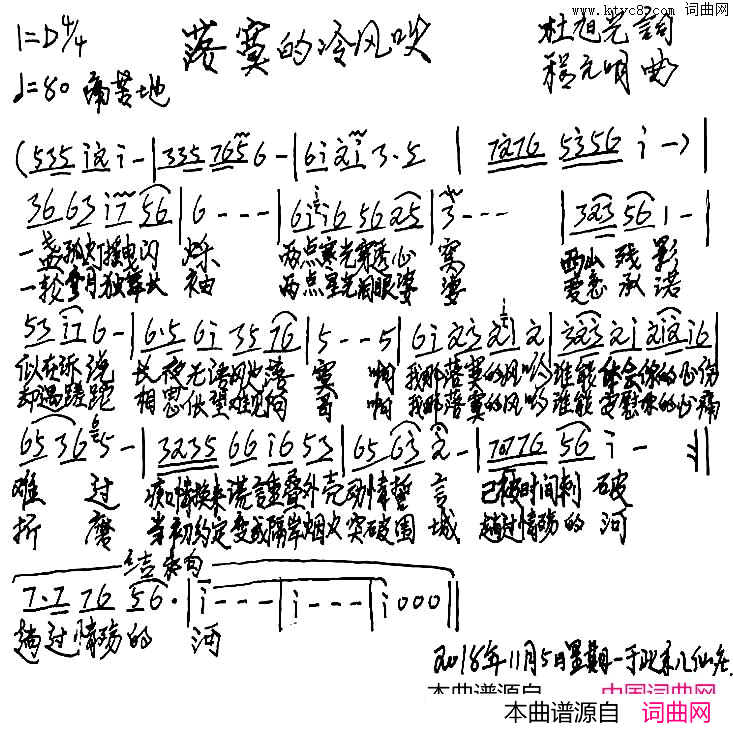 www.ktvc8.com 词曲网
1=D 4/4 落寞的冷风吹 杜旭光詞
♩=80 痛苦地 程元明曲
(535 i2 i - | 335 765 6 - | 6i 2i 3·5 | 7276 5356 i - ) |
36 63 i7 56 | 6 - - - | 6i i6 56 25 | 3 - - - | 323 56 1 - |
一盏孤灯 闪烁 两点寒光穿透心窝 西山残影
一轮 月独舞长袖 两点 光 眼婆娑 承诺
53 i7 6 - | 6·5 6i 35 76 | 5 - - 5 | 6i 23 2i 2 | 323 2i 2i2 i6 |
似在诉说 长夜无语 落寞 啊 我那落寞的风吹 谁能体会你的心伤
却遇蹉跎 相思 望难 啊 我那落寞的风吹 谁能安慰你的心痛
65 36 5 - | 3235 66 i6 53 | 65 63 2 - | 7276 56 i - :||
难过 痴情换来谎言重叠外壳 动情誓言 已被时间刺破
折磨 当初约定变成隔岸烟火 突破围城 趟过情殇的河
结束句
7·7 76 56· | i - - - | i - - - | i 0 0 0 ||
趟过情殇的河
2018年11月5日星期一于北京八仙庄.
本曲谱源自 中国词曲网
本曲谱源自 词曲网